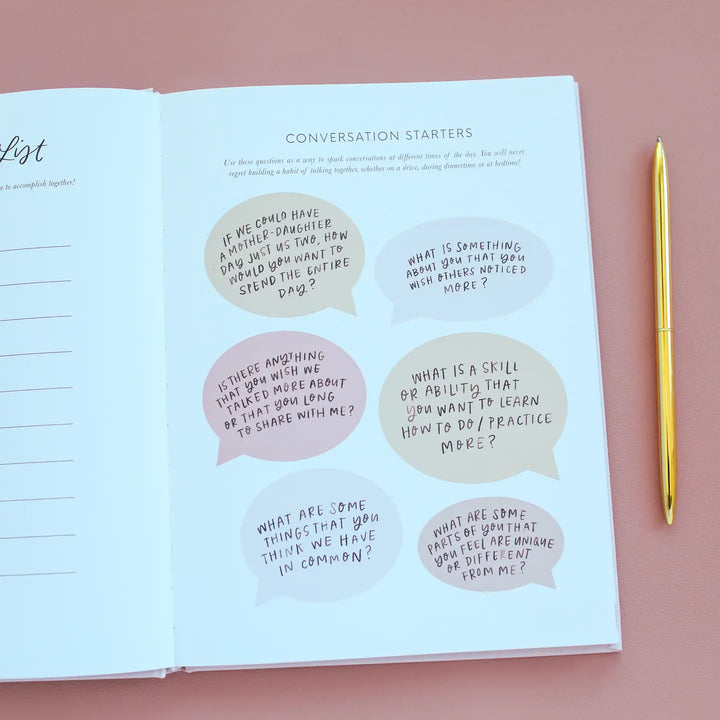 List
e to accomplish together!
CONVERSATION STARTERS
Use these questions as a way to spark conversations at different times of the day. You will never
regret building a habit of talking together, whether on a drive, during dinnertime or at bedtime!
IF WE COULD HAVE
A MOTHER-DAUGHTER
DAY JUST US TWO, HOW
WOULD YOU WANT TO
SPEND THE ENTIRE
DAY?
WHAT IS SOMETHING
ABOUT YOU THAT YOU
WISH OTHERS NOTICED
MORE?
IS THERE ANYTHING
THAT YOU WISH WE
TALKED MORE ABOUT
OR THAT YOU LONG
TO SHARE WITH ME?
WHAT IS A SKILL
OR ABILITY THAT
YOU WANT TO LEARN
HOW TO DO/PRACTICE
MORE?
WHAT ARE SOME
THINGS THAT YOU
THINK WE HAVE
IN COMMON?
WHAT ARE SOME
PARTS OF YOU THAT
YOU FEEL ARE UNIQUE
OR DIFFERENT
FROM ME?